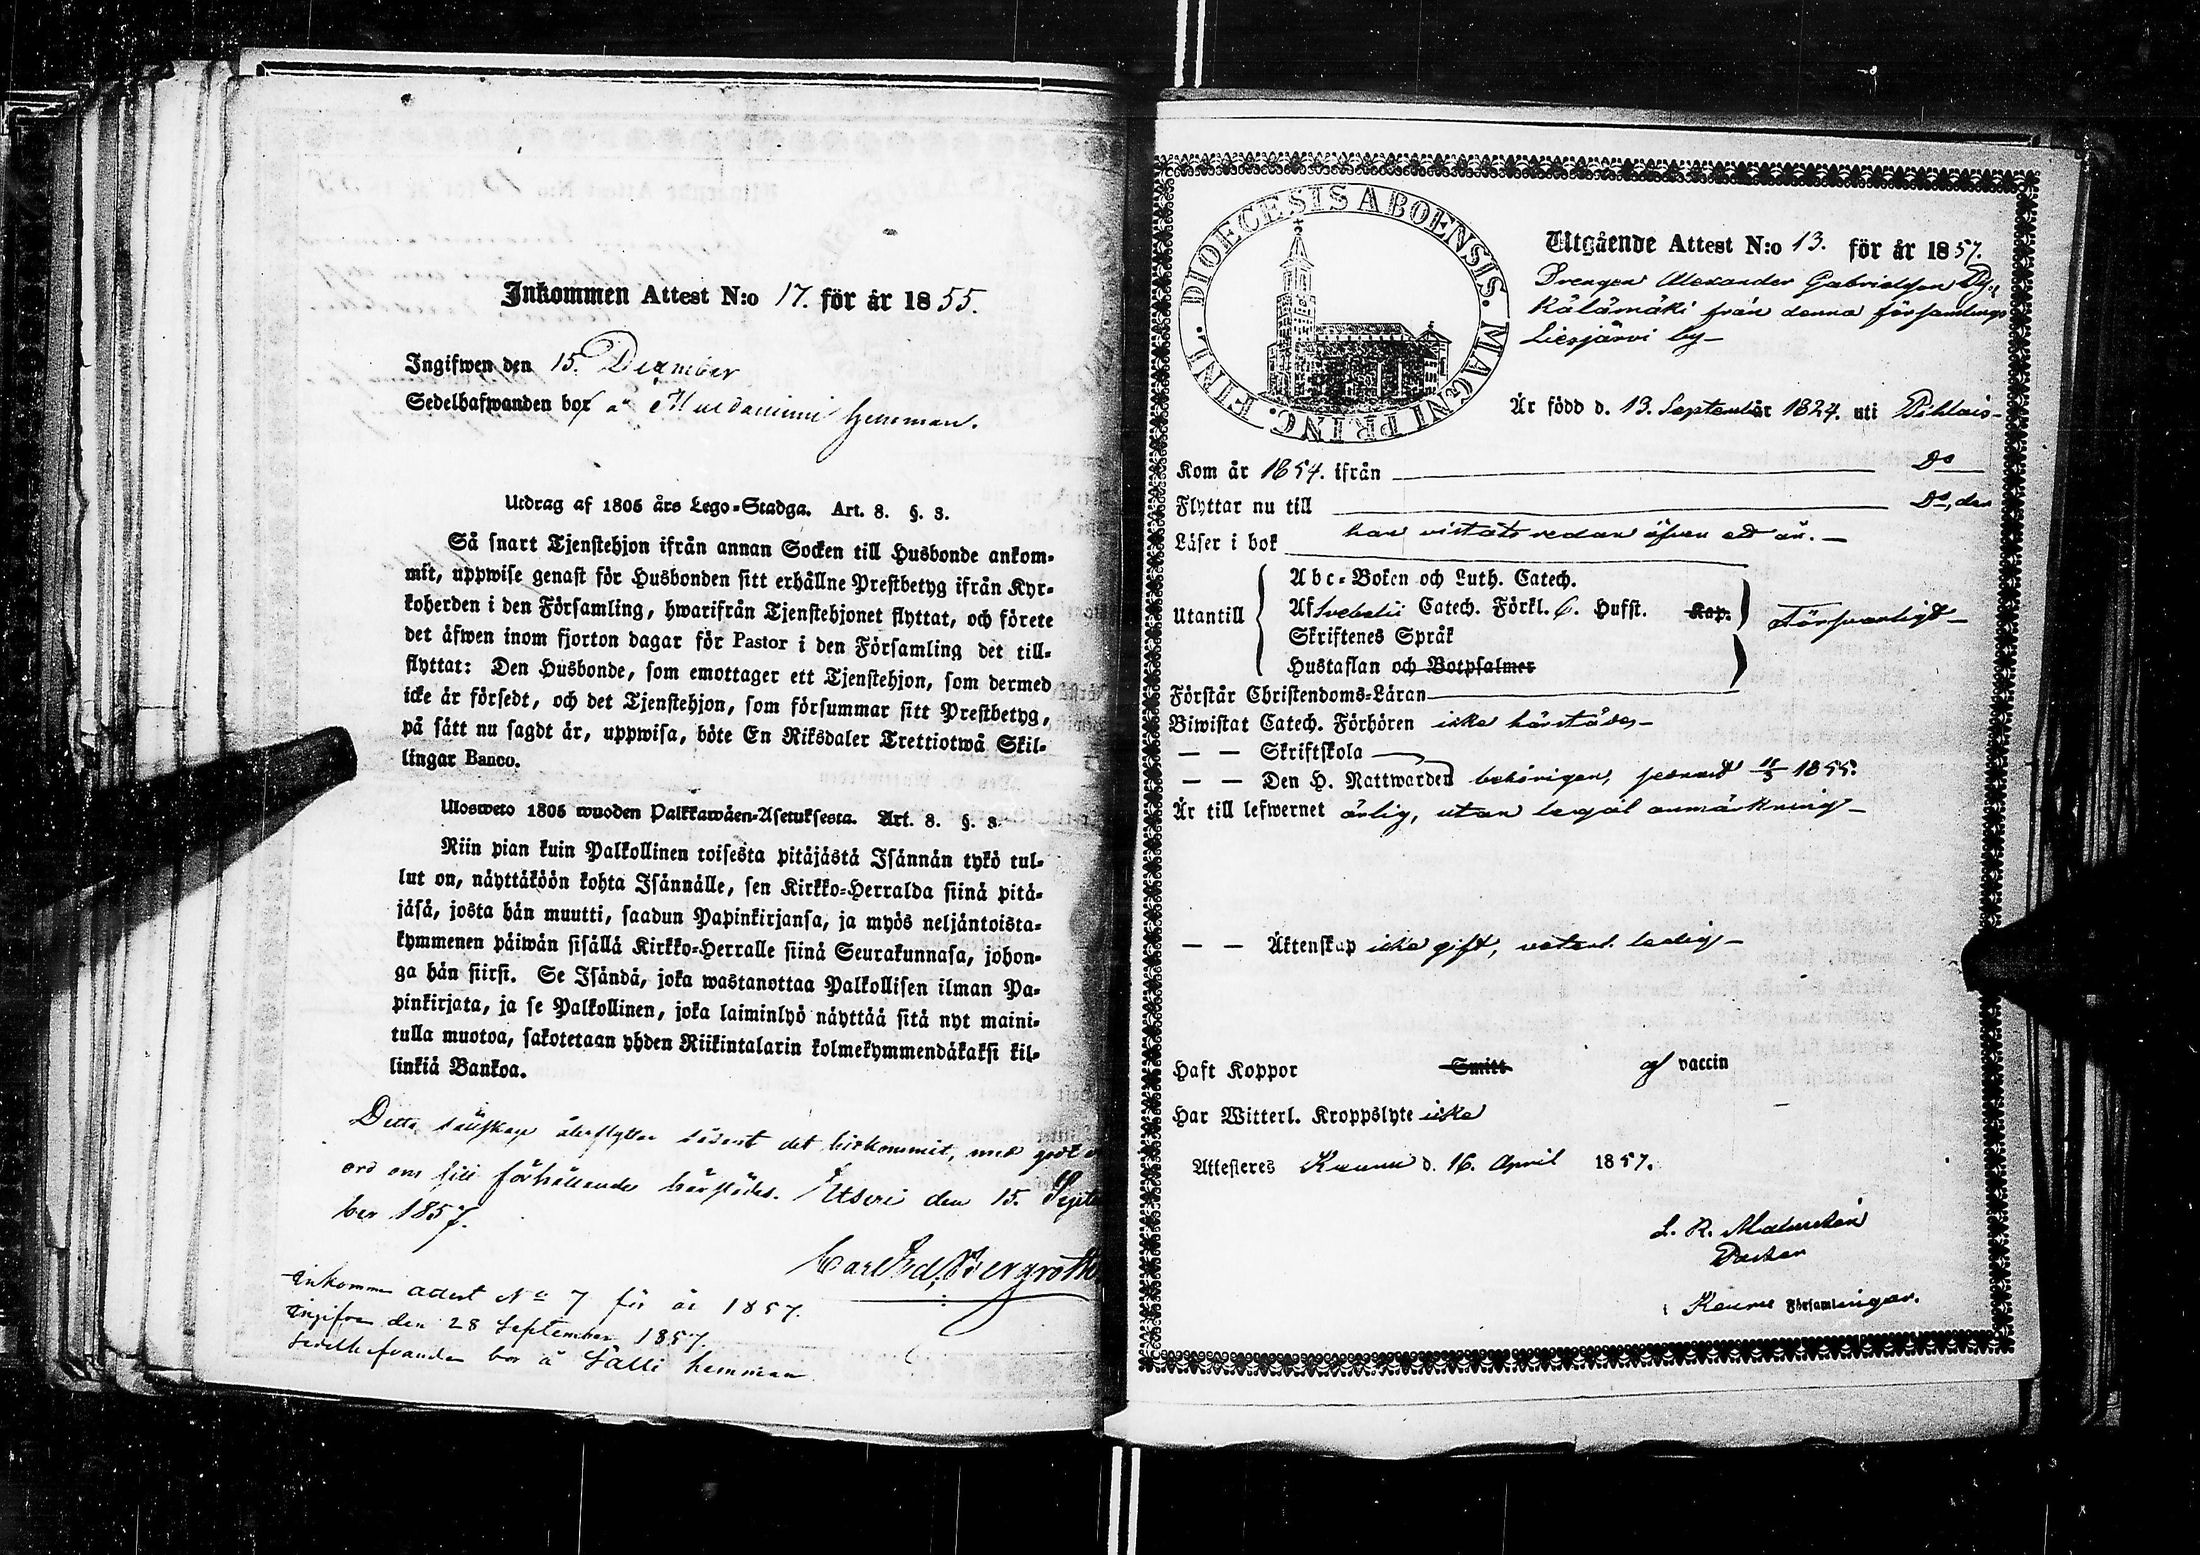 Inkommen Attest N:o 17. för år 1855.
Ingifwen den 15. December
Sedelhafwanden bor å hemman.
Utdrag af 1805 års Lego-Stadga. Art. 8. §. 3.
Så snart Tjenstehjon ifrån annan Socken till Husbonde ankom-
mit, uppwise genast för Husbonden sitt erhållne Prestbetyg ifrån Kyr-
koherden i den Församling, hwarifrån Tjenstehjonet flyttat, och förete
det äfwen inom fjorton dagar för Pastor i den Församling det till-
flyttat: Den Husbonde, som emottager ett Tjenstehjon, som dermed
icke är försedt, och det Tjenstehjon, som försummar sitt Prestbetyg,
på sätt nu sagdt är, uppwisa, böte En Riksdaler Trettiotwå Skil-
lingar Banco.
Ulosweto 1805 wuoden Palkkawäen-Asetuksesta. Art. 8. §. 3.
Niin pian kuin Palkollinen toisesta pitäjästä Isännän tykö tul-
lut on, näyttäköön kohta Isännälle, sen Kirkko-Herralda siinä pitä-
jäsä, josta hän muutti, saadun Papinkirjansa, ja myös neljäntoista-
kymmenen päiwän sisällä Kirkko-Herralle siinä Seurakunnasa, johon-
ga hän siirsi. Se Isändä, joka wastanottaa Palkollisen ilman Pa-
pinkirjata, ja se Palkollinen, joka laiminlyö näyttää sitä nyt maini-
tulla muotoa, sakotetaan yhden Riikintalarin kolmekymmendäkaksi kil-
linkiä Bankoa.
Detta sällskap återflyttar såsom det hitkommit, med godt
ord om sitt förhållande härstädes. Etseri den 15. Septem
ber 1857.
Carl Fred. Bergroth
Inkommen attest No 7 för år 1857.
Ingifven den 28 September 1857.
Sedelhafvanden bor å Sälli hemman
DIOECESIS ABOENSIS. MAGNI PRINC. FINL.
Utgående Attest N:o 13. för år 1857.
Drengen Alexander Gabrielsson
Kälämäki från denna församlings
Liesjärvi by
Är född d. 13. September 1824. uti Pihlais-
Kom år 1854. ifrån Do
Flyttar nu till Do, der
Läser i bok han vistats redan öfver ett år.
Utantill
Abc-Boken och Luth. Catech.
Af Svebelii Catech. Förkl. 6. Hufst. Kap.
Skriftenes Språk
Hustaflan och Botpsalmer
Försvarligt
Förstår Christendoms-Läran
Biwistat Catech. Förhören icke härstädes
— — Skriftskola
— — Den H. Nattwarden behörigen, senast 11/3 1855.
Är till lefwernet ärlig, utan legal anmärkning
— — Äktenskap icke gift, veterl. ledig
Haft Koppor Smitt af vaccin
Har Witterl. Kroppslyte icke
Attesteres Keuru d. 16. April 1857.
Pastor
i Keuru Församlingar.